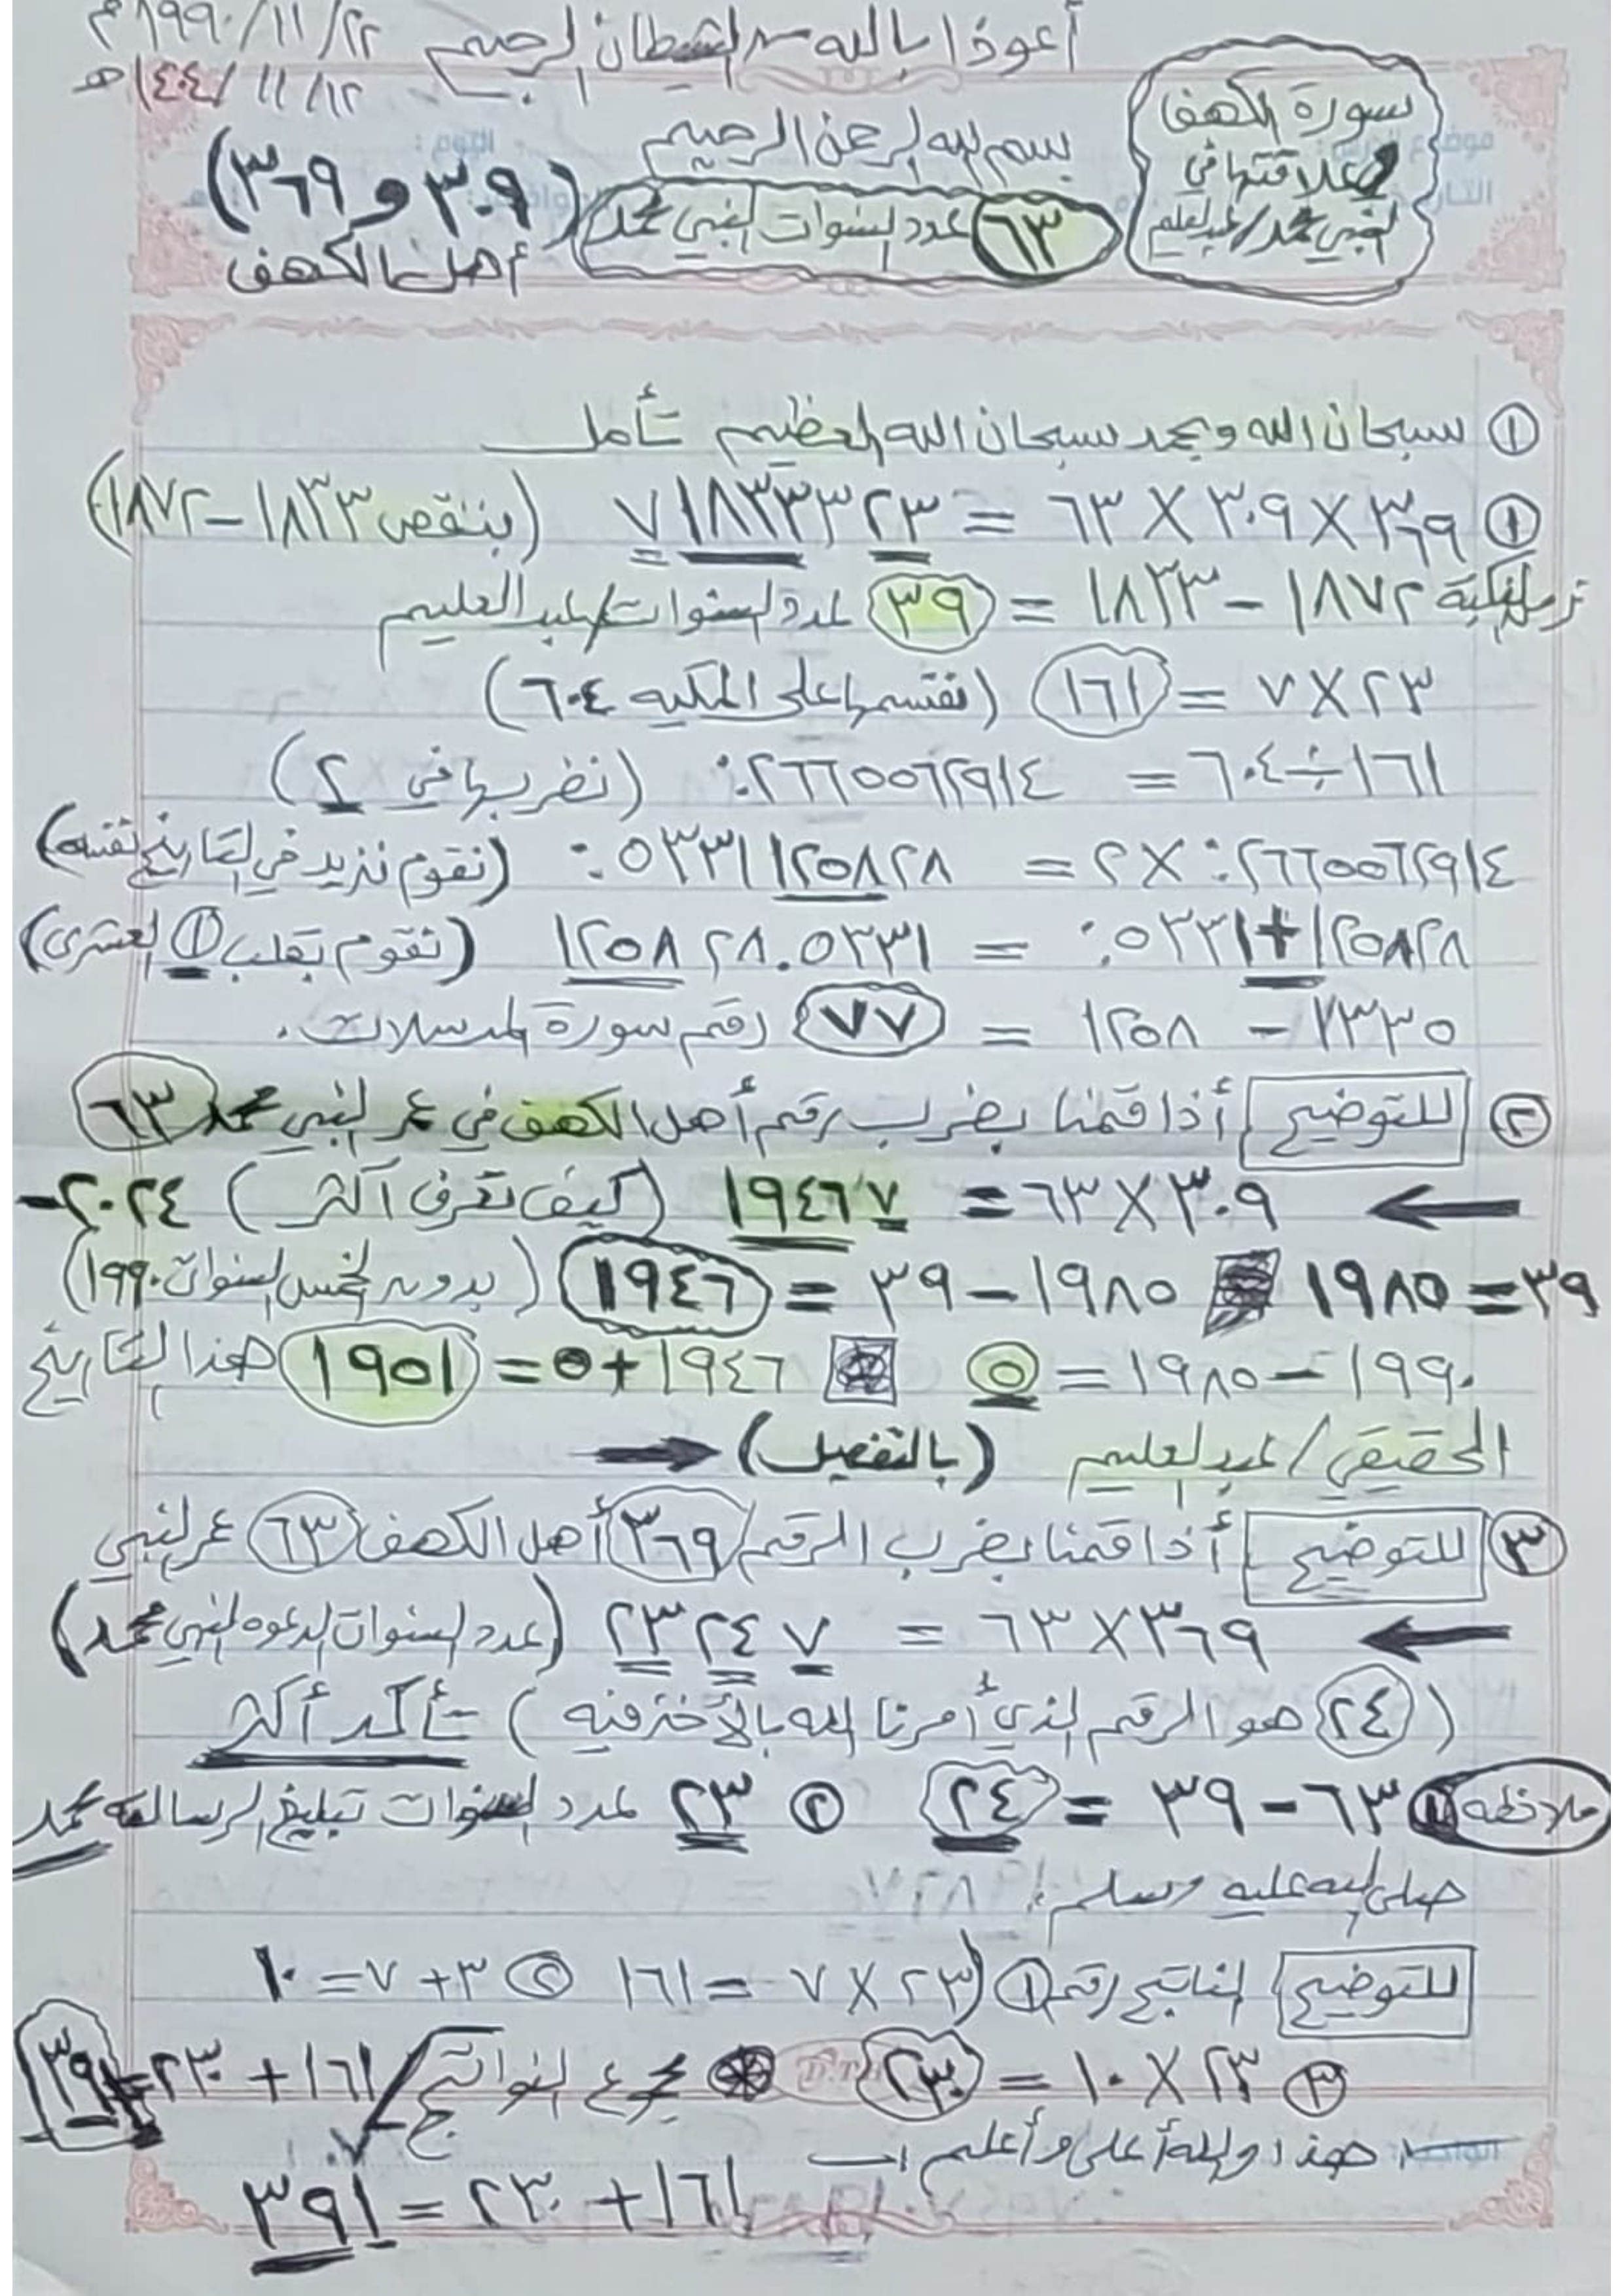 أعوذ بالله من الشيطان الرجيم
٢٢/١١/١٩٩٠م
١٢/١١/١٤٠٤هـ
سورة الكهف
علاقتها في
النبي محمد/عبدالعليم
بسم الله الرحمن الرحيم
٦٣ عدد السنوات النبي محمد
(٣٠٩ و ٣٦٩)
أهل الكهف
① سبحان الله وبحمد سبحان الله العظيم تأمل
① ٣٦٩ × ٣٠٩ × ٦٣ = ٧١٨٣٣٣٢٣ (بنتقص ١٨٣٣ – ١٨٧٢)
١٨٧٢ – ١٨٣٣ = ٣٩ عدد السنوات/عبد العليم
٢٣ × ٧ = ١٦١ (نقسمها على المكيه ٦٠٤)
١٦١ ÷ ٦٠٤ = ٠.٢٦٦٥٥٦٢٩١٤ (نضربها في 2)
٠.٢٦٦٥٥٦٢٩١٤ × ٢ = ٠.٥٣٣١١٢٥٨٢٨ (نقوم نزيد في التاريخ نفسه)
٠.٥٣٣١ + ١٢٥٨٢٨ = ١٢٥٨٢٨.٠٥٣٣١ (نقوم بقلب ① العشري)
١٣٣٥ – ١٢٥٨ = ٧٧ رقم سورة المرسلات.
② للتوضيح أذا قمنا بضرب رقم أهل الكهف في عمر النبي محمد ٦٣
٣٠٩ × ٦٣ = ١٩٤٦٧ (كيف تعرف أكثر) ٢٠٢٤ –
٣٩ = ١٩٨٥ ١٩٨٥ – ٣٩ = ١٩٤٦ (بدون الخمس السنوات ١٩٩٠)
١٩٩٠ – ١٩٨٥ = ٥ ١٩٤٦ + ٥ = ١٩٥١ هذا التاريخ
الحقيقي/عبدالعليم (بالتفصيل)
③ للتوضيح أذا قمنا بضرب الرقم/٣٦٩ أهل الكهف ٦٣ عمر النبي
٣٦٩ × ٦٣ = ٢٣٢٤٧ (عدد السنوات الدعوه النبي محمد)
(٢٤ هو الرقم الذي أمرنا الله بالأخذ فيه) تأكد أكثر
ملاحظه ① ٦٣ – ٣٩ = ٢٤ ② ٢٣ عدد السنوات تبليغ الرسالة محمد
صلى الله عليه وسلم.
للتوضيح الناتج رقم ① (٢٣ × ٧ = ١٦١ ② ٣ + ٧ = ١٠
③ ٢٣ × ١٠ = ٢٣٠ جمع النواتج ١٦١ + ٢٣٠ = ٣٩١
هذا والله أعلى وأعلم
١٦١ + ٢٣٠ = ٣٩١